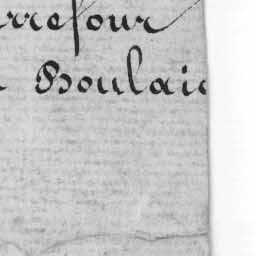 rrefour
Boulaie